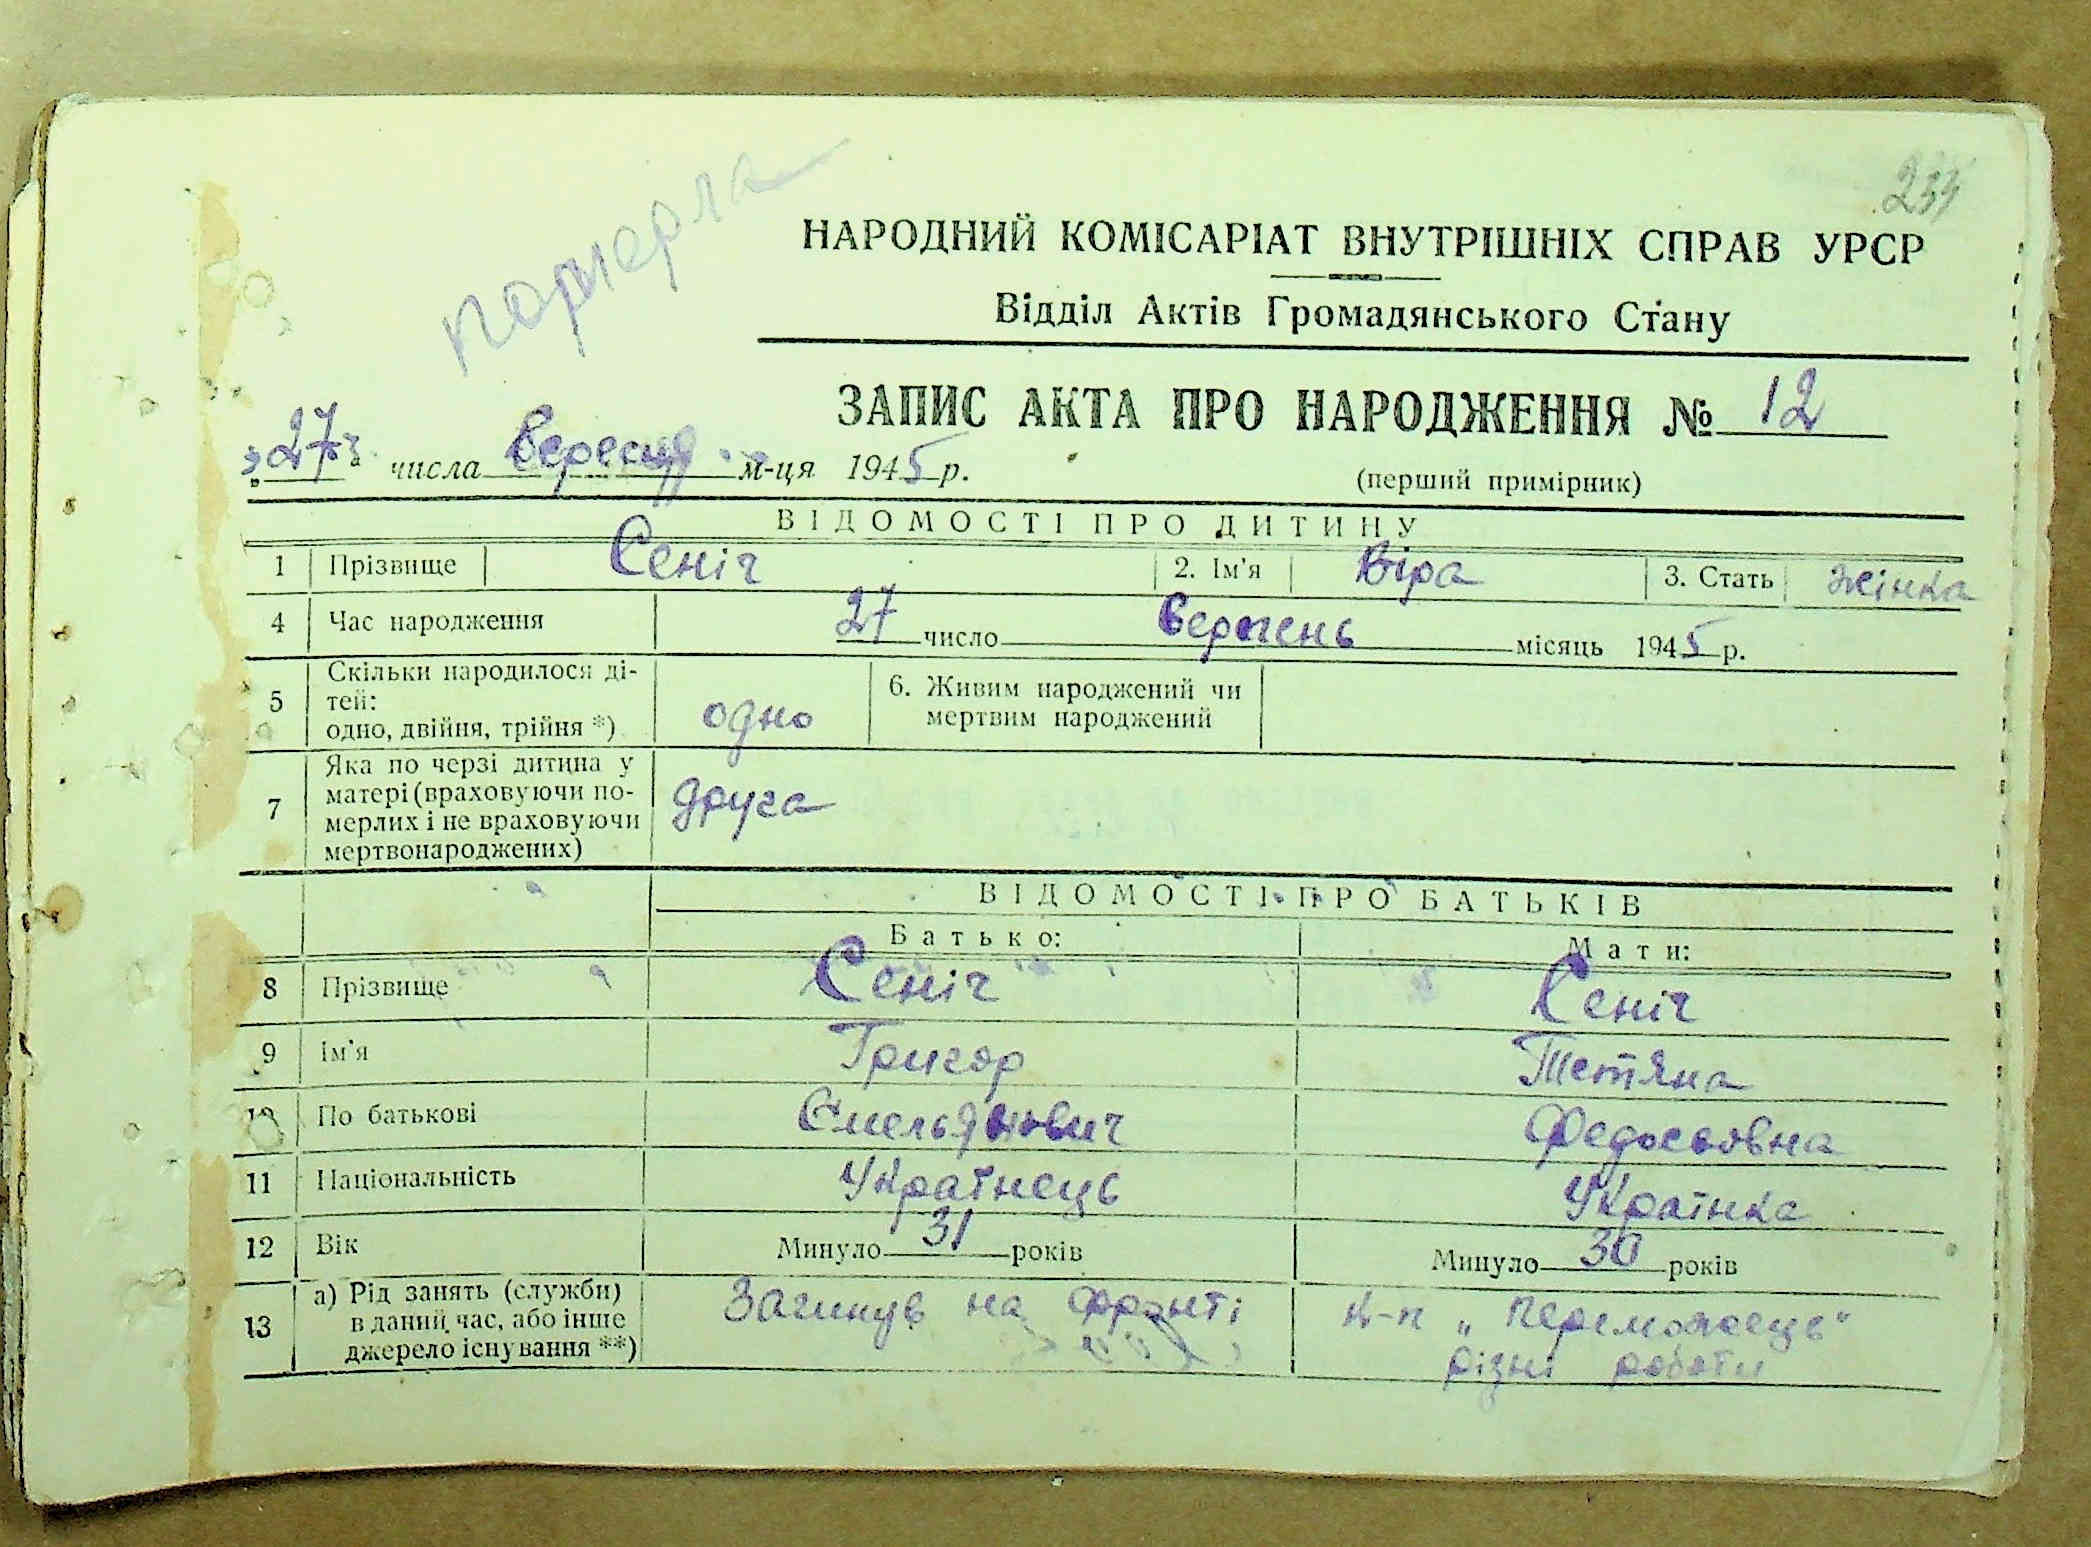 померла
НАРОДНИЙ КОМІСАРІАТ ВНУТРІШНІХ СПРАВ УРСР
Відділ Актів Громадянського Стану
ЗАПИС АКТА ПРО НАРОДЖЕННЯ № 12
„27" числа вересня м-ця 1945 р.
(перший примірник)
ВІДОМОСТІ ПРО ДИТИНУ
1 Прізвище Сеніч 2. Ім'я Віра 3. Стать жінка
4 Час народження 27 число вересень місяць 1945 р.
5 Скільки народилося ді-
тей:
одно, двійня, трійня *) одно
6. Живим народжений чи
мертвим народжений
7 Яка по черзі дитина у
матері (враховуючи по-
мерлих і не враховуючи
мертвонароджених) друга
ВІДОМОСТІ ПРО БАТЬКІВ
Батько: Мати:
8 Прізвище Сеніч Сеніч
9 Ім'я Григор Тетяна
10 По батькові Омельянович Федосьовна
11 Національність Українець Українка
12 Вік Минуло 31 років Минуло 30 років
13 а) Рід занять (служби)
в даний час, або інше
джерело існування **)
Загинув на фронті
К-п „Переможець"
різні роботи